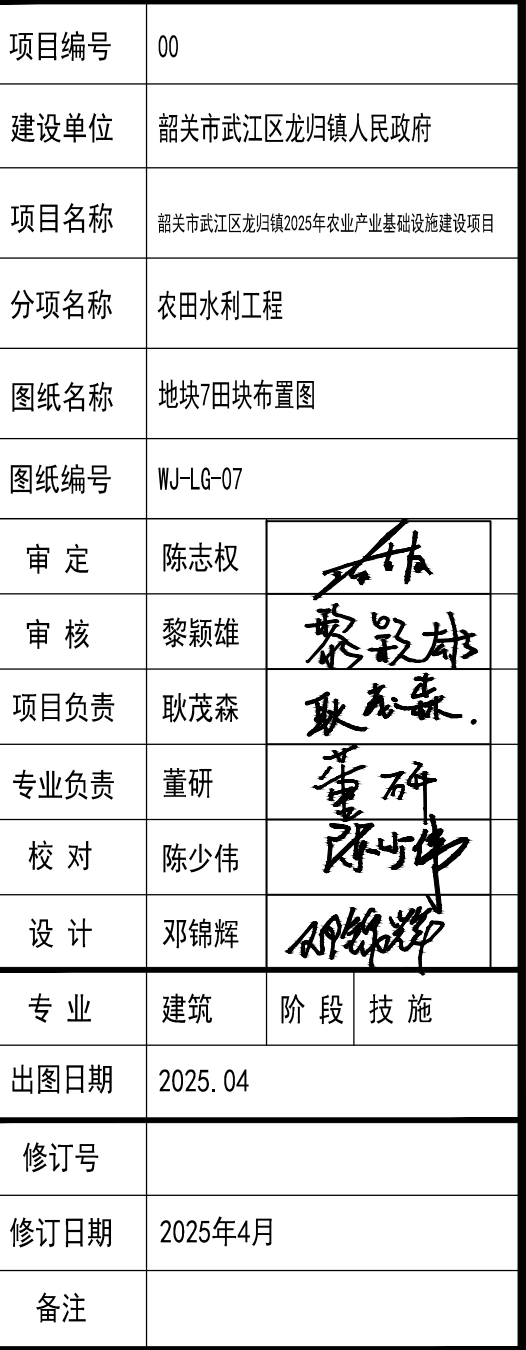 项目编号 00
建设单位 韶关市武江区龙归镇人民政府
项目名称 韶关市武江区龙归镇2025年农业产业基础设施建设项目
分项名称 农田水利工程
图纸名称 地块7田块布置图
图纸编号 WJ-LG-07
审 定 陈志权
审 核 黎颖雄 黎颖雄
项目负责 耿茂森 耿茂森.
专业负责 董研 董研
校 对 陈少伟 陈少伟
设 计 邓锦辉 邓锦辉
专 业 建筑 阶 段 技 施
出图日期 2025.04
修订号
修订日期 2025年4月
备注